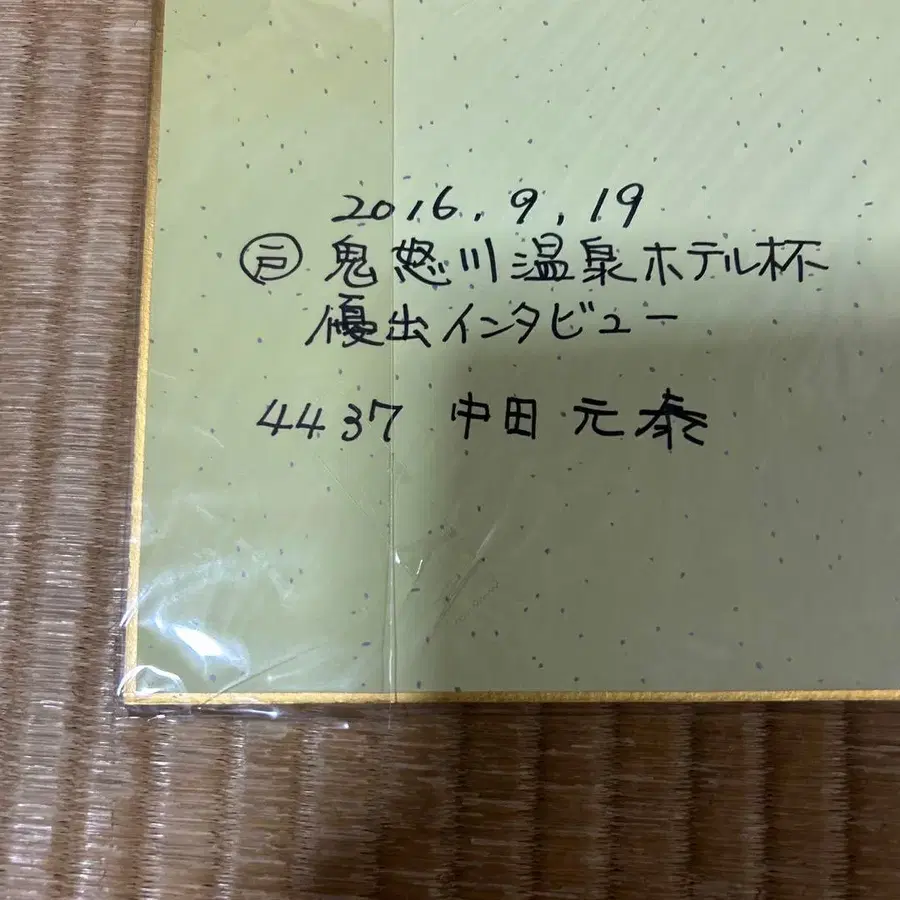 2016.9.19
㊁戸 鬼怒川温泉ホテル杯
優出インタビュー
4437 中田元泰